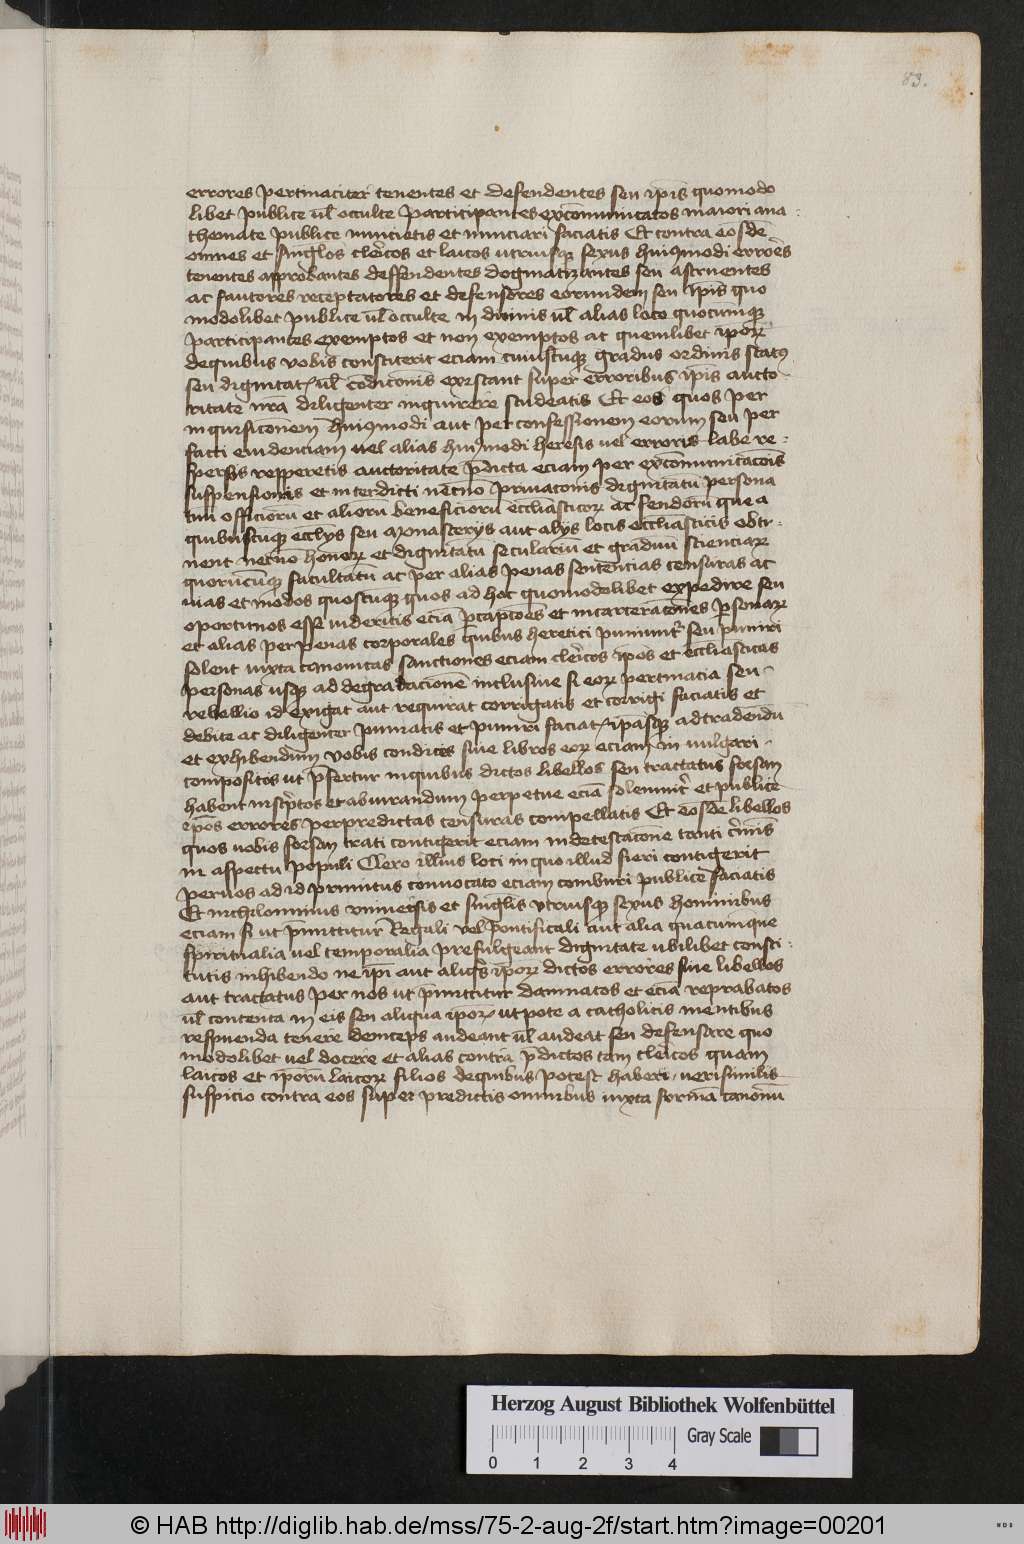 83.
errores pertinaciter tenentes et defendentes seu ip̄is quomodo
libet publice ul̄ occulte participantes exco̅municatos maiori ana
themate publice nuncietis et nunciari faciatis Et contra eosdē
omnes et singl̄os clēicos et laicos utriusqꝫ sexus huiꝰmodi errores
tenentes approbantes deffendentes dogmatizantes seu asseruentes
ac fautores receptatores et defensores eorundem seu ip̄is quo
modolibet publice ul̄ occulte in diuinis ul̄ alias loco quocumqꝫ
participantes exemptos et non exemptos ac quemlibet ip̄oꝝ
dequibus vobis constiterit eciam cuiuscūqꝫ gradus ordinis statꝰ
seu dignitatꝭ ul̄ co̅dicionis existant super erroribus ip̄is aucto
ritate nr̄a diligenter inquirere studeatis Et eos quos per
inquisicionem huiꝰmodi aut per confessionem eorum seu per
facti euidenciam uel alias huiꝰmodi heresis uel erroris labe re-
spersos reppereritis auctoritate p̄dicta eciam per exco̅municacōis
suspensionis et interdicti necnō priuacionis dignitatū persona
tuū officiorū et aliorū beneficiorū ecclīasticoꝝ ac feudorū que a
quibuscūqꝫ eccl̄ijs seu monasterijs aut alijs locis eccl̄iasticis obti-
nent necnō honoꝝ et dignitatū seculariū et graduū scienciaꝝ
quorūcūqꝫ facultatū ac per alias penas sentencias censuras ac
uias et modos quoscūqꝫ quos ad hoc quomodolibet expedire seu
oportunos esse uideritis eciā p̄ capcōes et incarceracōnes p̄sonaꝝ
et alias per penas corporales quibus heretici puniunt̄ seu puniri
solent iuxta canonicas sanctiones eciam clēicos ip̄os et eccl̄iasticas
personas usqꝫ ad degradacionē inclusiue si eoꝝ pertinacia seu
rebellio id exigat aut requirat corrigatis et corrigi faciatis et
debite ac diligenter puniatis et puniri faciatꝭ ip̄asqꝫ adtradendū
et exhibendum vobis condices siue libros eoꝝ eciam in uulgari
compositos ut p̄fertur inquibus dictos libellos seu tractatus forsan
habent inscriptos et abiurandum perpetue eciā solemnit̄ et publice
ip̄os errores perpredictas censuras compellatis Et eosdē libellos
quos uobis forsan trati contigerit eciam in detestacōne tanti c̄mīs
in aspectu populi Clero illius loci inquo illud fieri contigerit
peruos ad id primitus conuocato eciam comburi publice faciatis
Et nichilominus uniuersis et singl̄is vtriusqꝫ sexus hominibus
eciam si ut p̄mittitur Regali vel pontificali aut alia quacumque
spirituali uel temporalia prefulgeant dignitate ubilibet consti-
tutis inhibendo ne ip̄i aut aliqs̄ ip̄oꝝ dictos errores siue libellos
aut tractatus per nos ut p̄mittitur damnatos et eciā reprobatos
ul̄ contenta in eis seu aliqua ip̄oꝝ utpote a catholicis mentibus
respuenda tenere deinceps audeant ul̄ audeat seu defensare quo
modolibet uel docere et alias contra p̄dictos tam clēicos quam
laicos et ip̄orū laicoꝝ filios dequibus potest haberi uerisimilis
suspicio contra eos super predictis omnibus iuxta formā canonū
Herzog August Bibliothek Wolfenbüttel
Gray Scale
0 1 2 3 4
© HAB http://diglib.hab.de/mss/75-2-aug-2f/start.htm?image=00201